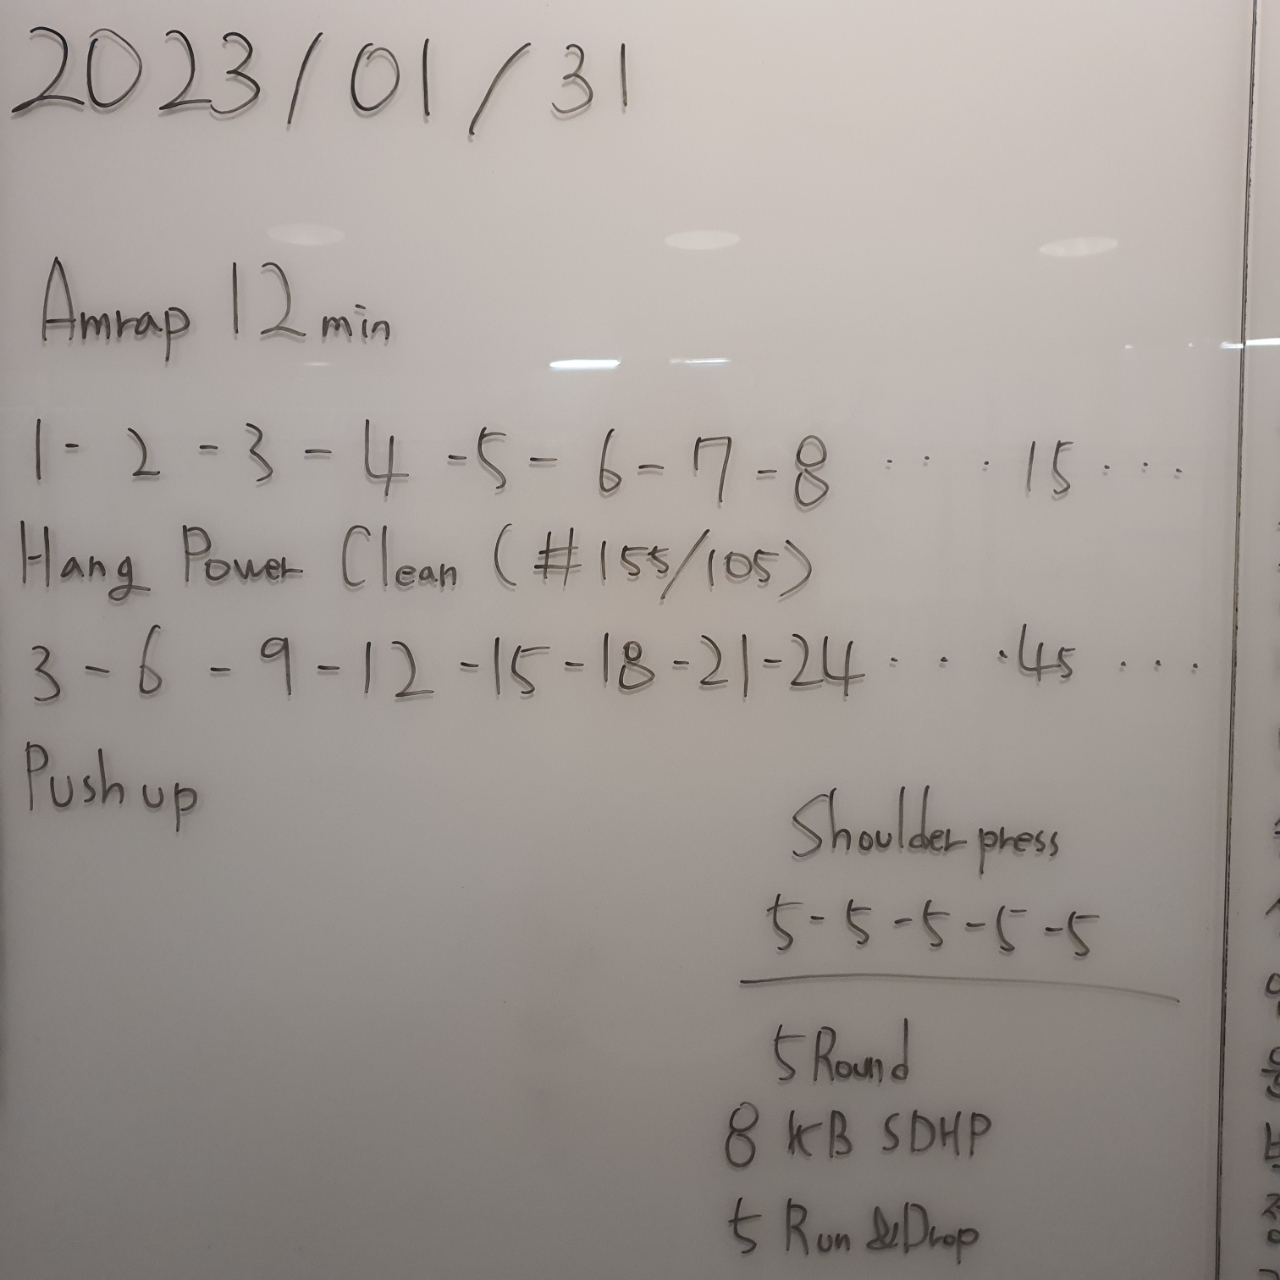 2023/01/31
Amrap 12 min
1 - 2 - 3 - 4 - 5 - 6 - 7 - 8 ... 15 ...
Hang Power Clean (#155/105)
3 - 6 - 9 - 12 - 15 - 18 - 21 - 24 ... 45 ...
Push up
Shoulder press
5 - 5 - 5 - 5 - 5
5 Round
8 KB SDHP
5 Run & Drop